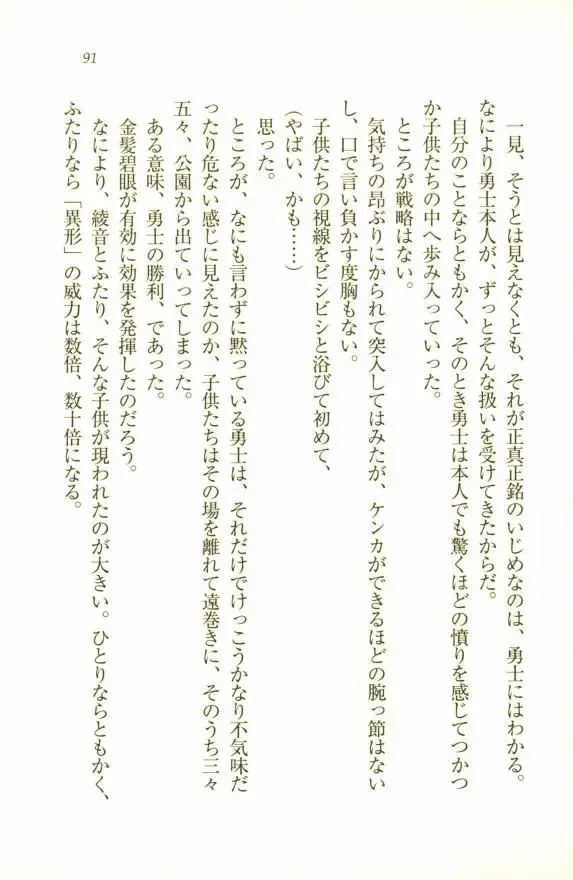 91
一見、そうとは見えなくとも、それが正真正銘のいじめなのは、勇士にはわかる。
なにより勇士本人が、ずっとそんな扱いを受けてきたからだ。
自分のことならともかく、そのとき勇士は本人でも驚くほどの憤りを感じてつかつ
か子供たちの中へ歩み入っていった。
ところが戦略はない。
気持ちの昂ぶりにかられて突入してはみたが、ケンカができるほどの腕っ節はない
し、口で言い負かす度胸もない。
子供たちの視線をビシビシと浴びて初めて、
(やばい、かも……)
思った。
ところが、なにも言わずに黙っている勇士は、それだけでけっこうかなり不気味だ
ったり危ない感じに見えたのか、子供たちはその場を離れて遠巻きに、そのうち三々
五々、公園から出ていってしまった。
ある意味、勇士の勝利、であった。
金髪碧眼が有効に効果を発揮したのだろう。
なにより、綾音とふたり、そんな子供が現われたのが大きい。ひとりならともかく、
ふたりなら「異形」の威力は数倍、数十倍になる。